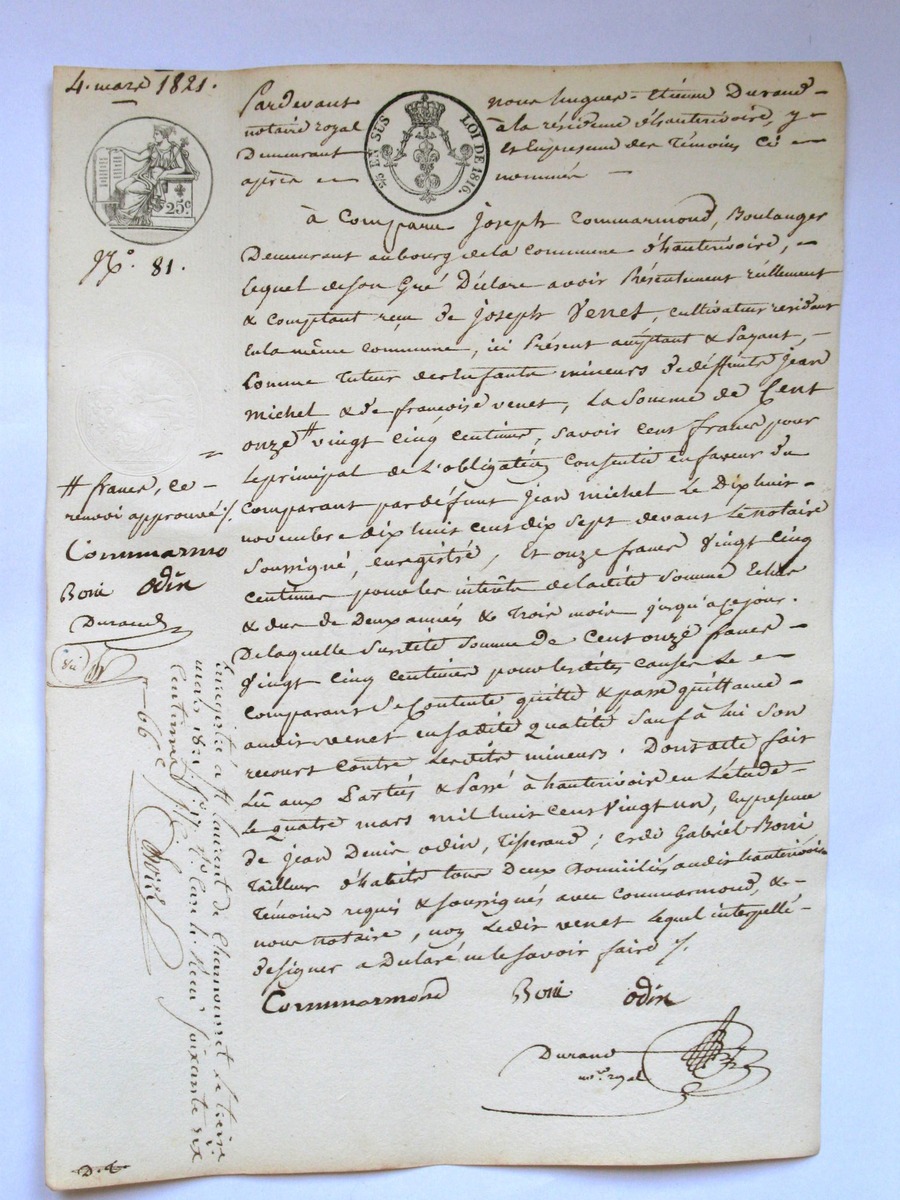 4. mars 1821.
Pardevant nous hugues-Etienne Durand -
notaire royal à la résidence d'hauterivoire, y -
Demeurant et En presence des Témoins Ci -
après - nommés -
EN SUS
LOI DE 1816.
25c.
N.o 81.
à Comparu Joseph Commarmond, Boulanger
Demeurant au bourg de la commune d'hauterivoire, -
lequel de son Gré Déclare avoir Présentement réellement
& comptant reçu de Joseph Venet, cultivateur residant
En la même commune, ici Présent acceptant & Payant, -
Comme tuteur des Enfants mineurs de deffunts Jean
michel & de françoise venet, La Somme de Cent
onze # vingt cinq centimes, savoir cent francs pour
le principal de L'obligation Consentie en faveur du
Comparant par défunt Jean michel Le Dix huit -
novembre dix huit cent dix sept devant Le notaire
soussigné, enregistré, Et onze francs Vingt Cinq
Centimes pour les intérêts de la dite somme Echus
& dus de Deux années & trois mois jusqu'a ce jour.
De laquelle susdite somme de Cent onze francs -
Vingt Cinq centimes pour les dites causes Le -
comparant Se Contente quitte & passe quittance -
audit venet en sadite qualité sauf à lui son
recours contre Lesdits mineurs. Dont acte fait
Lû aux Parties & Passé à hauterivoire en L'étude -
Le quatre mars mil huit cent Vingt un, En presence
de Jean Denis odin, Tisserand; et de Gabriel Boni
Tailleur d'habits tous Deux Domiciliés audit hauterivoire
Témoins requis & soussignés avec Commarmond, & -
nous notaire, non Ledit venet Lequel interpellé -
de signer a Déclaré ne le savoir faire /.
Commarmond Boni odin
Durand
re. royal
# francs, ce -
renvoi approuvé /.
Commarmo
Boni odin
Durand
Enregistré à St. laurent de Chamousset le treize
mars 1821 soixante six
Centimes
66c
D. t.